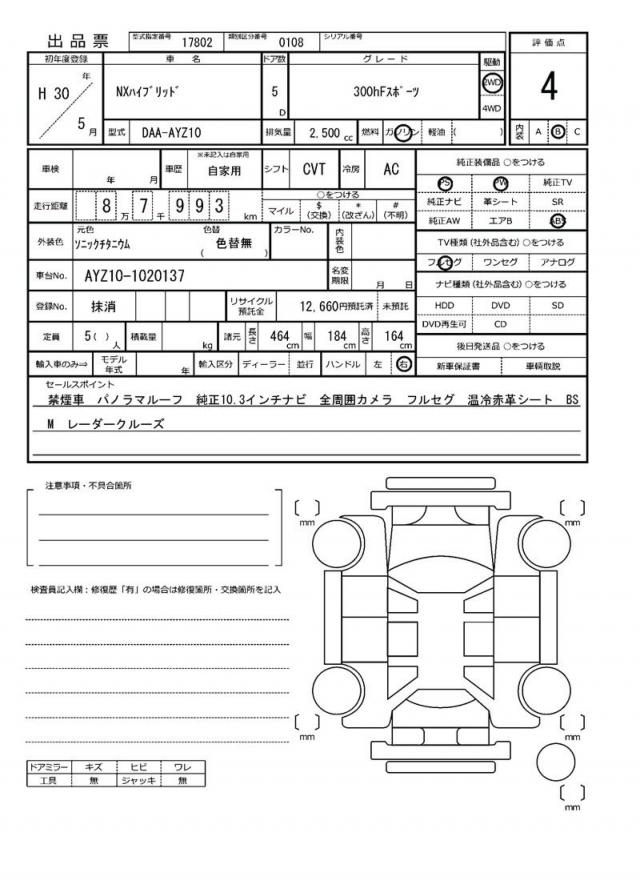 出品票 型式指定番号 17802 類別区分番号 0108 シリアル番号
評価点
4
内装 A B C
初年度登録 車名 ドア数 グレード 駆動
H 30 年 5 月 NXハイブリッド 5 D 300hFスポーツ 2WD 4WD
型式 DAA-AYZ10 排気量 2,500 cc 燃料 ガソリン 軽油 ( )
車検 年 月 車歴 ※未記入は自家用 自家用 シフト CVT 冷房 AC
走行距離 8 万 7 千 9 9 3 km
○をつける
マイル $ (交換) * (改ざん) # (不明)
外装色 元色 ソニックチタニウム 色替 ( 色替無 ) カラーNo. 内装色
車台No. AYZ10-1020137 名変期限 月 日
登録No. 抹消 リサイクル預託金 12,660円預託済 未預託
定員 5( ) 人 積載量 kg 諸元 長さ 464 cm 幅 184 cm 高さ 164 cm
輸入車のみ⇒ モデル年式 年 輸入区分 ディーラー 並行 ハンドル 左 右
純正装備品 ○をつける
PS PW 純正TV
純正ナビ 革シート SR
純正AW エアB ABS
TV種類(社外品含む)○をつける
フルセグ ワンセグ アナログ
ナビ種類(社外品含む)○をつける
HDD DVD SD
DVD再生可 CD
後日発送品 ○をつける
新車保証書 車輌取説
セールスポイント
禁煙車 パノラマルーフ 純正10.3インチナビ 全周囲カメラ フルセグ 温冷赤革シート BS
M レーダークルーズ
注意事項・不具合箇所
検査員記入欄：修復歴「有」の場合は修復箇所・交換箇所を記入
ドアミラー キズ ヒビ ワレ
工具 無 ジャッキ 無
mm
mm
mm
mm
mm